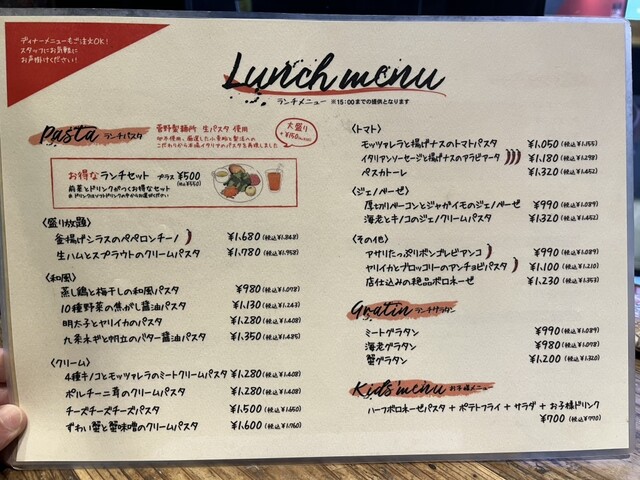 ディナーメニューもご注文OK!
スタッフにお気軽に
お声掛けください!
Lunch menu
ランチメニュー ※15:00までの提供となります
Pasta ランチパスタ
菅野製麺所 生パスタ 使用
こだわりから本場イタリアのパスタを再現しました
大盛り
+¥150
お得なランチセット プラス ¥500
(税込¥550)
前菜とドリンクがつくお得なセット
〈盛り放題〉
釜揚げシラスのペペロンチーノ ¥1,680(税込¥1,848)
生ハムとスプラウトのクリームパスタ ¥1,780(税込¥1,958)
〈和風〉
蒸し鶏と梅干しの和風パスタ ¥980(税込¥1,078)
10種野菜の焦がし醤油パスタ ¥1,130(税込¥1,243)
明太子とヤリイカのパスタ ¥1,280(税込¥1,408)
九条ネギと帆立のバター醤油パスタ ¥1,350(税込¥1,485)
〈クリーム〉
4種キノコとモッツァレラのミートクリームパスタ ¥1,280(税込¥1,408)
ポルチーニ茸のクリームパスタ ¥1,280(税込¥1,408)
チーズチーズチーズパスタ ¥1,500(税込¥1,650)
ずわい蟹と蟹味噌のクリームパスタ ¥1,600(税込¥1,760)
〈トマト〉
モッツァレラと揚げナスのトマトパスタ ¥1,050(税込¥1,155)
イタリアンソーセージと揚げナスのアラビアータ ¥1,180(税込¥1,298)
ペスカトーレ ¥1,320(税込¥1,452)
〈ジェノベーゼ〉
厚切りベーコンとジャガイモのジェノベーゼ ¥990(税込¥1,089)
海老とキノコのジェノクリームパスタ ¥1,320(税込¥1,452)
〈その他〉
アサリたっぷりボンゴレビアンコ ¥990(税込¥1,089)
ヤリイカとブロッコリーのアンチョビパスタ ¥1,100(税込¥1,210)
店仕込みの絶品ボロネーゼ ¥1,230(税込¥1,353)
Gratin ランチグラタン
ミートグラタン ¥990(税込¥1,089)
海老グラタン ¥980(税込¥1,078)
蟹グラタン ¥1,200(税込¥1,320)
Kids'menu お子様メニュー
ハーフボロネーゼパスタ + ポテトフライ + サラダ + お子様ドリンク
¥700(税込¥770)